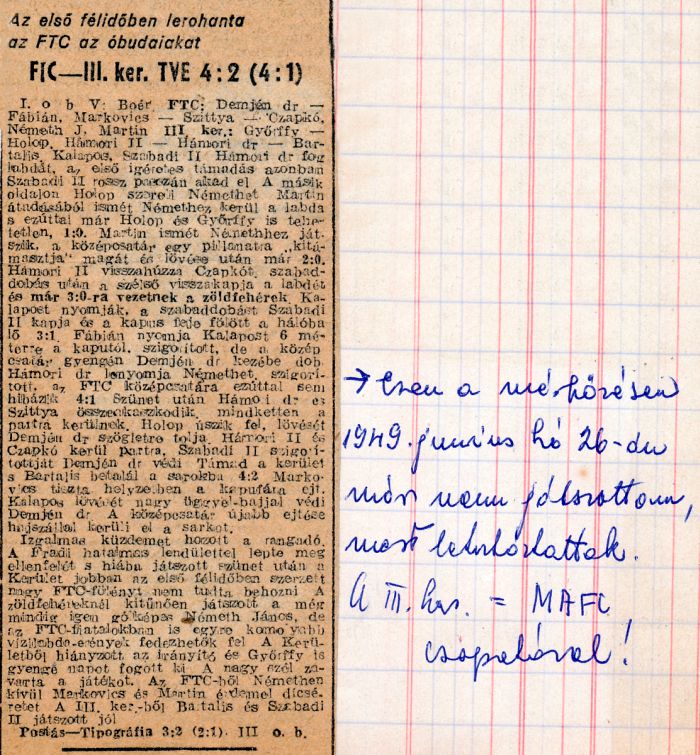 Az első félidőben lerohanta
az FTC az óbudaiakat
FTC—III. ker. TVE 4:2 (4:1)
I. o b V: Boér. FTC: Demjén dr —
Fábián, Markovics — Szittya — Czapkó,
Németh J, Martin III ker.: Győrffy —
Holop, Hámori II — Hámori dr — Bar-
talis, Kalapos, Szabadi II Hámori dr fog
labdát, az első ígéretes támadás azonban
Szabadi II rossz passzán akad el A másik
oldalon Holop szereli Némethet Martin
átadásából ismét Némethez kerül a labda
s ezúttal már Holop és Győrffy is tehe-
tetlen, 1:0. Martin ismét Némethhez ját-
szik, a középcsatár egy pillanatra „kitá-
masztja" magát és lövése után már 2:0.
Hámori II visszahúzza Czapkót, szabad-
dobás után a szélső visszakapja a labdát
és már 3:0-ra vezetnek a zöldfehérek. Ka-
lapost nyomják, a szabaddobást Szabadi
II kapja és a kapus feje fölött a hálóba
lő 3:1. Fábián nyomja Kalapost 6 mé-
terre a kaputól, szigorított, de a közép
csatár gyengén Demjén dr kezébe dob.
Hámori dr lenyomja Némethet, szigorí-
tott, az FTC középcsatára ezúttal sem
hibázik 4:1 Szünet után Hámori dr és
Szittya összeakaszkodik, mindketten a
partra kerülnek. Holop úszik fel, lövését
Demjén dr szögletre tolja. Hámori II és
Czapkó kerül partra, Szabadi II szigorí-
tottját Demjén dr védi Támad a kerület
s Bartalis betalál a sarokba 4:2 Marko-
vics tiszta helyzetben a kapufára ejt.
Kalapos lövését nagy üggyel-bajjal védi
Demjén dr A középcsatár újabb ejtése
hajszállal kerüli el a sarkot.
Izgalmas küzdemet hozott a rangadó.
A Fradi hatalmas lendülettel lepte meg
ellenfelét s hiába játszott szünet után a
Kerület jobban az első félidőben szerzett
nagy FTC-fölényt nem tudta behozni A
zöldfehéreknél kitűnően játszott a még
mindig igen gólképes Németh János, de
az FTC-fiatalokban is egyre komolyabb
vízilabda-erények fedezhetők fel A Kerü-
letből hiányzott az irányító és Győrffy is
gyenge napot fogott ki A nagy szél za-
varta a játékot. Az FTC-ből Némethen
kívül Markovics és Martin érdemel dicsé-
retet A III. ker.-ből Bartalis és Szabadi
II játszott jól
Postás—Tipográfia 3:2 (2:1). III o. b.
→ Ezen a mérkőzésen
1949. június hó 26-án
már nem játszottam,
mert letartóztattak.
A III. ker. = MAFC
csapatával!